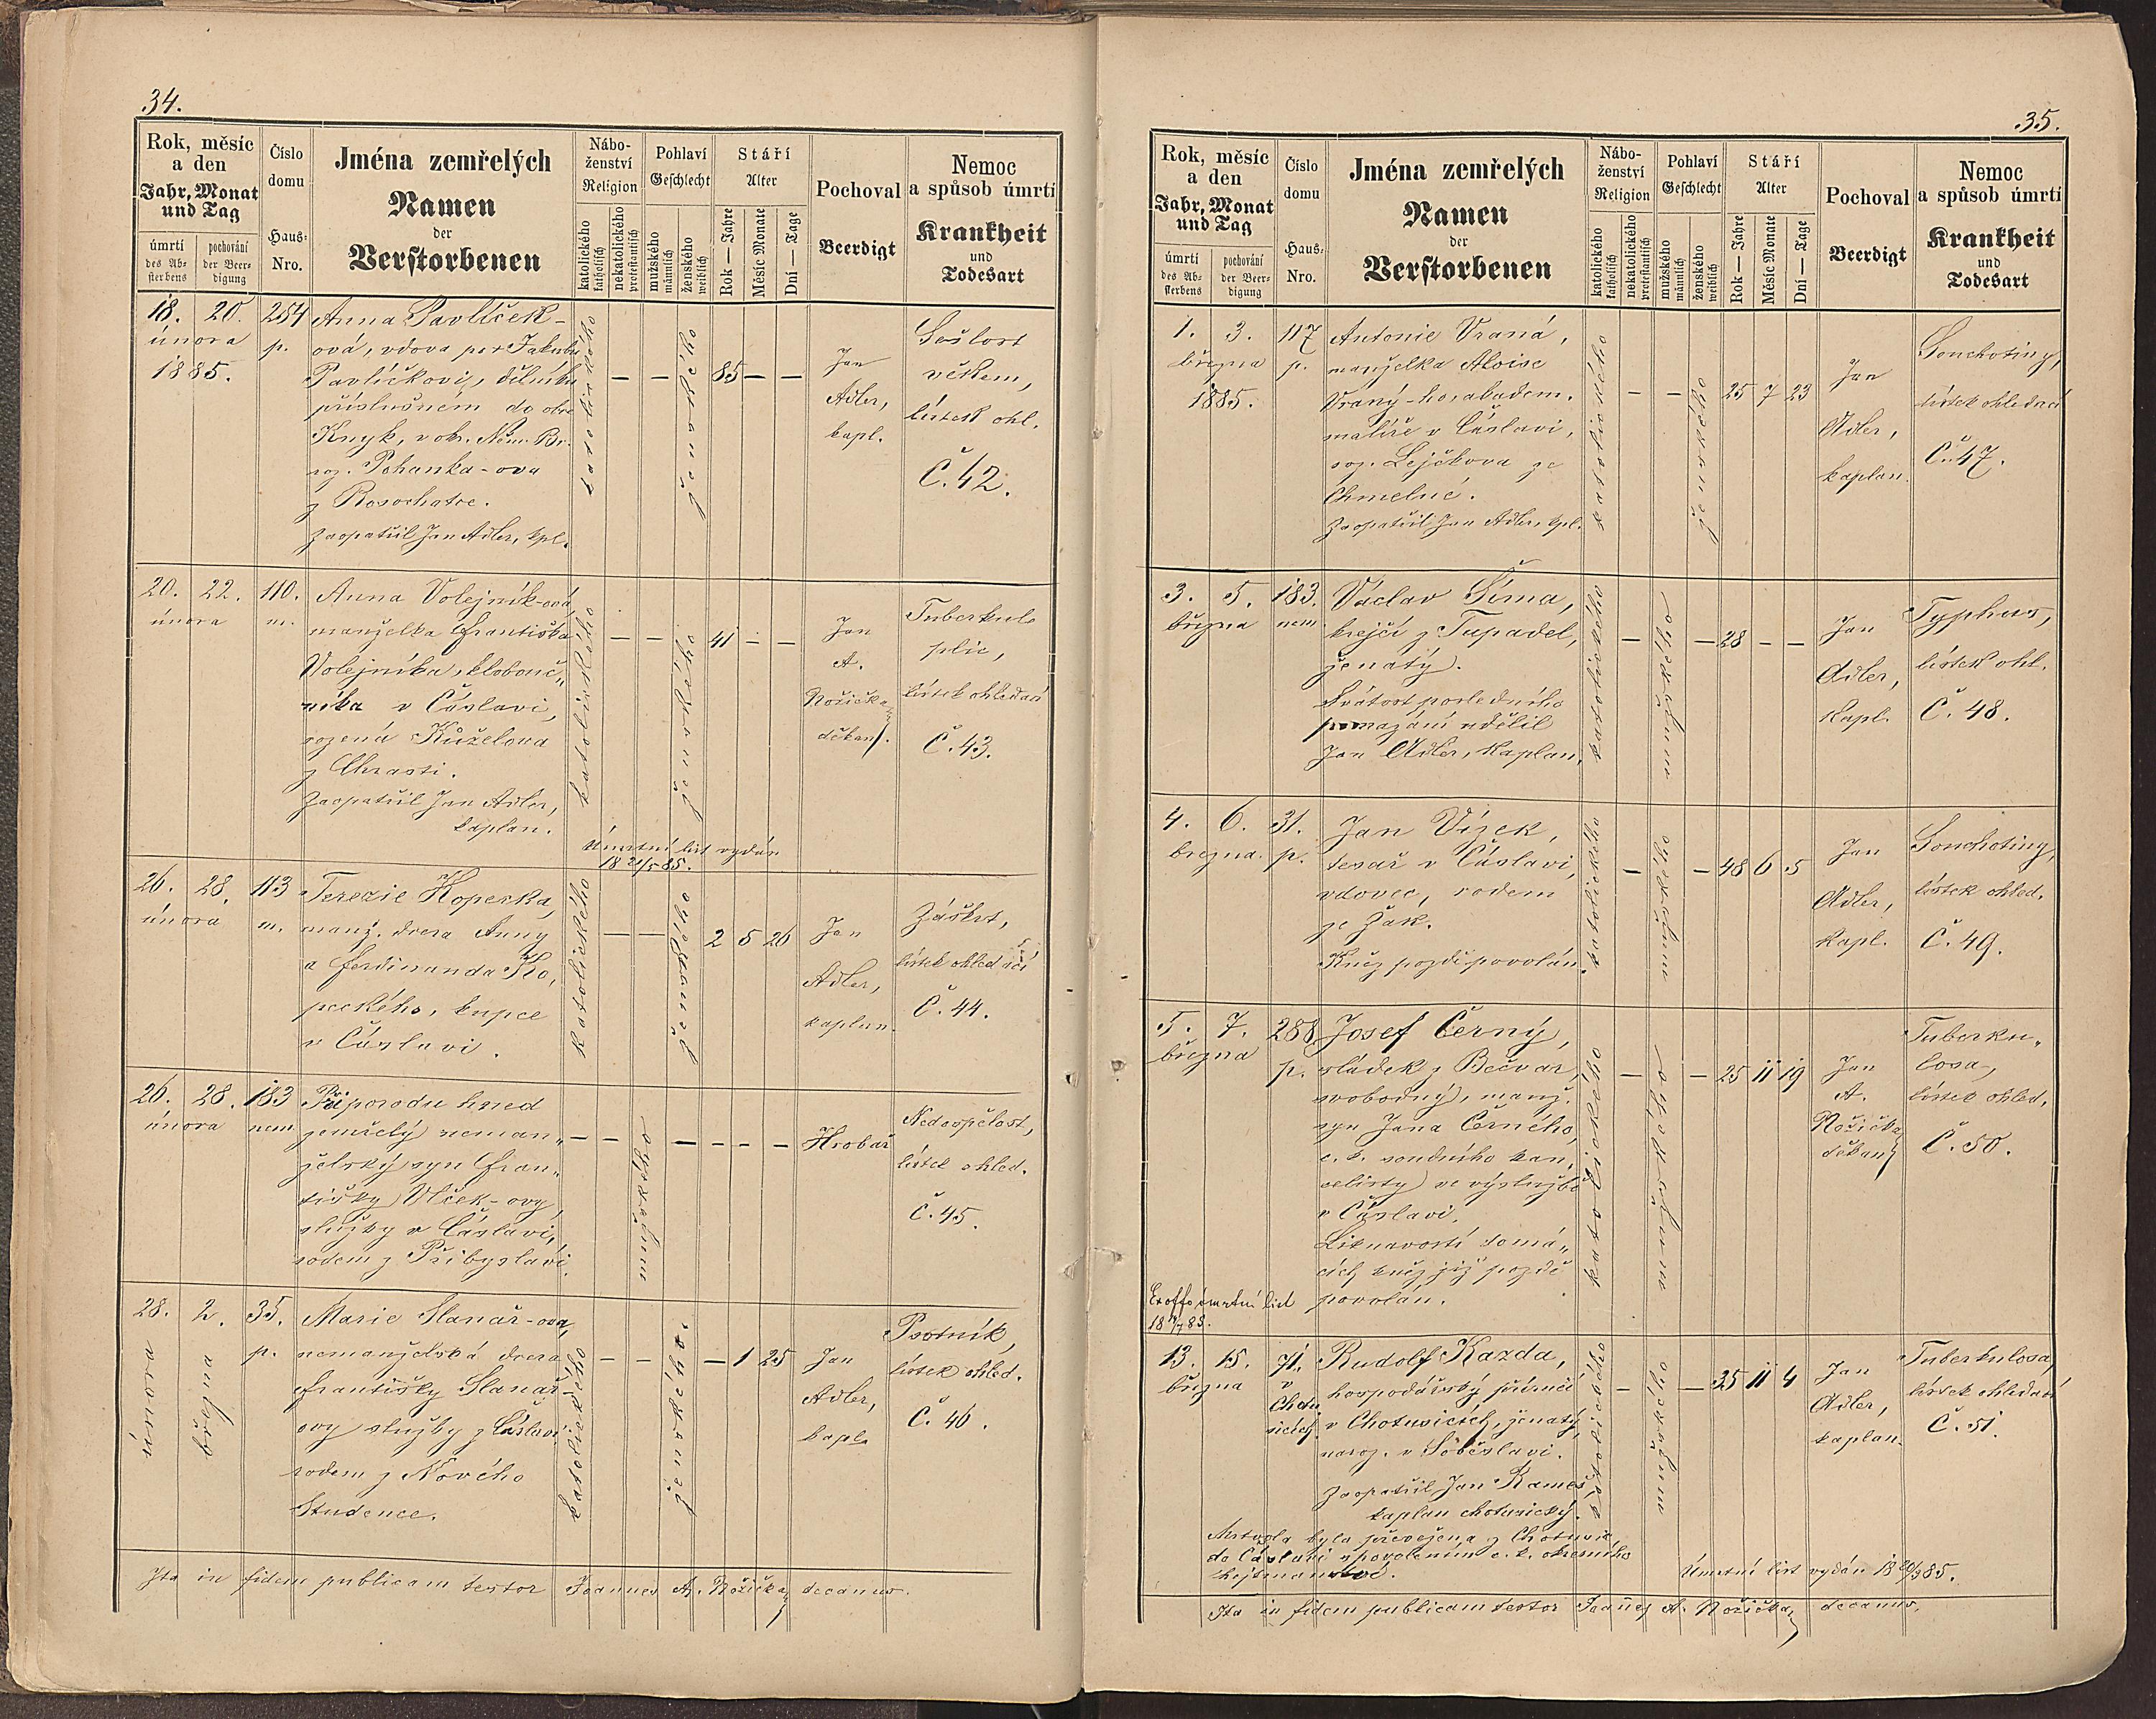 34.
Rok, měsíc
a den
Jahr, Monat
und Tag
úmrtí
des Ab-
sterbens
pochování
der Beer-
digung
Číslo
domu
Haus-
Nro.
Jména zemřelých
Namen
der
Verstorbenen
Nábo-
ženství
Religion
katolického
katholisch
nekatolického
protestantisch
Pohlaví
Geschlecht
mužského
männlich
ženského
weiblich
Stáří
Alter
Rok — Jahre
Měsíc Monate
Dní — Tage
Pochoval
Beerdigt
Nemoc
a spůsob úmrtí
Krankheit
und
Todesart
18. 20. 254
února p.
1885.
Anna Pavlíček-
ová, vdova po + Jakubu
Pavlíčkovi, dělníku
příslušném do obce
Knyk, v okr. Něm. Br.
roz. Pohanka-ova
z Rosochatce.
Zaopatřil Jan Adler, kpl.
katolického
— —
ženského
85 — —
Jan
Adler,
kapl.
Sešlost
věkem,
lístek ohl.
Č. 42.
20. 22. 110.
února m.
Anna Volejník-ová,
manželka Františka
Volejníka, klobouč„
níka v Čáslavi,
rozená Kůželova
z Chrasti.
Zaopatřil Jan Adler,
kaplan.
katolického
— —
ženského
41 — —
Jan
A.
Nožička,
děkan.
Tuberkul.
plic,
lístek ohledací
Č. 43.
Úmrtní list vydán
18 21/5 85.
26. 28. 113
února m.
Terezie Kopecka,
manž. dcera Anny
a Ferdinanda Ko„
peckého, kupce
v Čáslavi.
katolického
— —
ženského
2 5 26
Jan
Adler,
kaplan.
Záškrt,
lístek ohledací
Č. 44.
26. 28. 183
února nem.
Při porodu hned
zemřelý neman„
želský syn Fran„
tišky Vlček-ovy,
služky v Čáslavi,
rodem z Přibyslavi.
— —
mužského
— — — —
Hrobař
Nedospělost,
lístek ohled.
Č. 45.
28. 2. 35.
února března p.
Marie Slanař-ova,
nemanželská dcera
Františky Slanař-
ovy služky z Čáslavi
rodem z Nového
Studence.
katolického
— —
ženského
— 1 25
Jan
Adler,
kapl.
Psotník,
lístek ohled.
Č. 46.
Ita in fidem publicam testor Joannes A. Nožička, decanus.
35.
Rok, měsíc
a den
Jahr, Monat
und Tag
úmrtí
des Ab-
sterbens
pochování
der Beer-
digung
Číslo
domu
Haus-
Nro.
Jména zemřelých
Namen
der
Verstorbenen
Nábo-
ženství
Religion
katolického
katholisch
nekatolického
protestantisch
Pohlaví
Geschlecht
mužského
männlich
ženského
weiblich
Stáří
Alter
Rok — Jahre
Měsíc Monate
Dní — Tage
Pochoval
Beerdigt
Nemoc
a spůsob úmrtí
Krankheit
und
Todesart
1. 3. 117
března p.
1885.
Antonie Vraná,
manželka Aloise
Vraný-ho, akadem.
malíře v Čáslavi,
roz. Lejčkova ze
Chmelné.
Zaopatřil Jan Adler, kpl.
katolického
— —
ženského
25 7 23
Jan
Adler,
kaplan.
Souchotiny,
lístek ohledací
Č. 47.
3. 5. 183.
března nem.
Václav Šíma,
krejčí z Tupadel,
ženatý.
Svátost posledního
pomazání udělil
Jan Adler, kaplan.
katolického
—
mužského
— 28 — —
Jan
Adler,
kapl.
Typhus,
lístek ohl.
Č. 48.
4. 6. 31.
března. p.
Jan Vízek,
tesař v Čáslavi,
vdovec, rodem
ze Žak.
Kněz pozdě povolán.
katolického
—
mužského
— 48 6 5
Jan
Adler,
kapl.
Souchotiny,
lístek ohled.
Č. 49.
5. 7. 288
března p.
Josef Černý,
sládek z Bečvar,
svobodný, manž.
syn Jana Černého,
c. k. soudního kan„
celisty ve výslužbě
v Čáslavi.
Liknavostí domá„
cích kněz již pozdě
povolán.
katolického
—
mužského
— 25 11 19
Jan
A.
Nožička,
děkan
Tuberku„
losa,
lístek ohled.
Č. 50.
Ex offo úmrtní list
13. 15. 71.
března v
Chotu
sicích
Rudolf Kazda,
hospodářský příručí
v Chotusicích, ženatý,
naroz. v Soběslavi.
Zaopatřil Jan Kameš,
kaplan chotusický.
katolického
—
mužského
— 35 11 4
Jan
Adler,
kaplan.
Tuberkulosa,
lístek ohledací
Č. 51.
Mrtvola byla převežena z Chotusic
do Čáslavi s povolením c. k. okresního
hejtmanství.
Úmrtní list vydán 18 20/3 85.
Ita in fidem publicam testor Joannes A. Nožička, decanus.